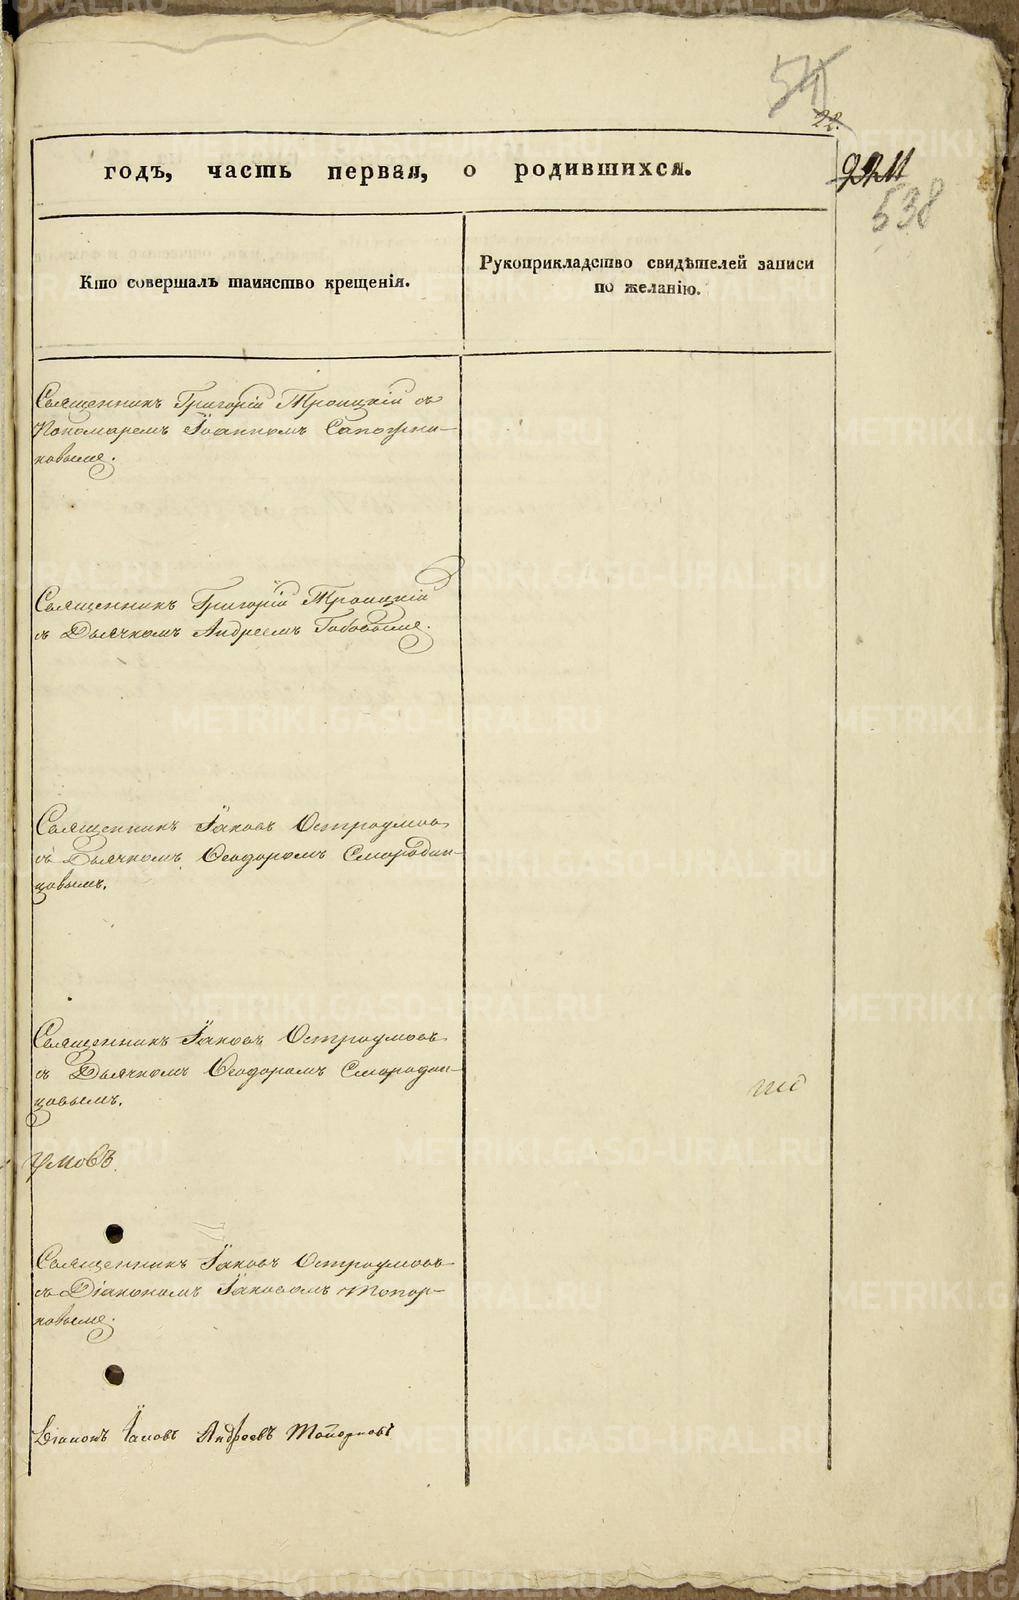 22.
538
годъ, часть первая, о родившихся.
Кто совершалъ таинство крещенія.
Рукоприкладство свидѣтелей записи
по желанію.
Священникъ Григорій Троицкій съ
Пономаремъ Іоанномъ Сапожни-
ковымъ.
Священникъ Григорій Троицкій
съ Дьячкомъ Андреемъ
Священникъ Іаковъ Остроумовъ
съ Дьячкомъ Ѳеодоромъ Смородин-
цовымъ.
Священникъ Іаковъ Остроумовъ
съ Дьячкомъ Ѳеодоромъ Смородин-
цовымъ.
умовъ.
Священникъ Іаковъ Остроумовъ
съ Діакономъ Іаковомъ Топор-
ковымъ.
Діаконъ Іаковъ Андреевъ Топорковъ
METRIKI.GASO-URAL.RU